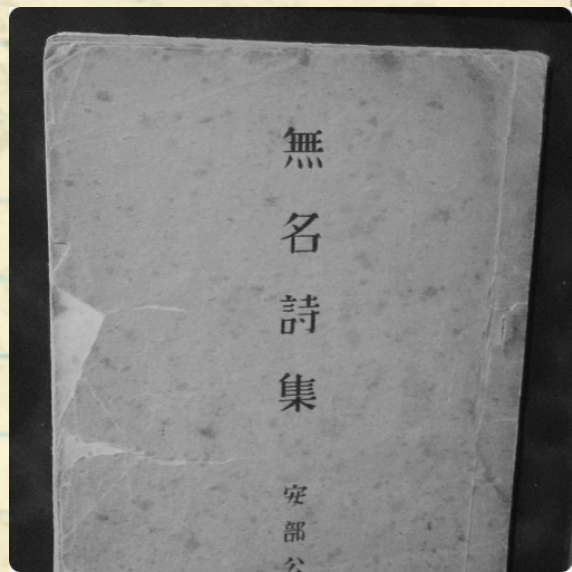 無名詩集
安部公